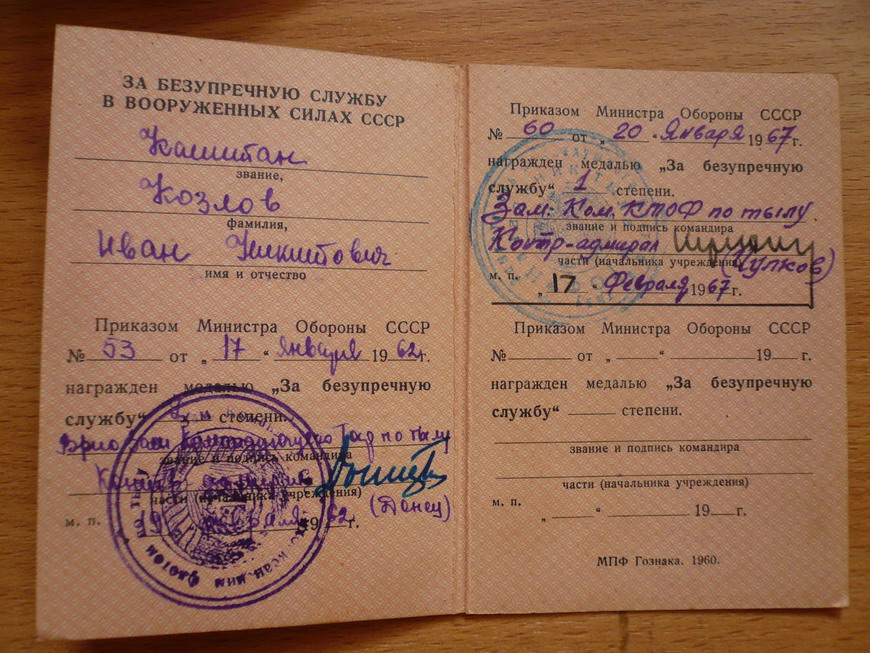 ЗА БЕЗУПРЕЧНУЮ СЛУЖБУ
В ВООРУЖЕННЫХ СИЛАХ СССР
Капитан
звание,
Козлов
фамилия,
Иван Никитович
имя и отчество
Приказом Министра Обороны СССР
№ 53 от „17“ января 1962г.
награжден медалью „За безупречную
службу“ степени.
Врио Зам Командующего Тоф по тылу
звание и подпись командира
Контр адмирал
части (начальника учреждения)
(Донец)
м. п. февраля 1962г.
Приказом Министра Обороны СССР
№ 60 от „20“ Января 1967г.
награжден медалью „За безупречную
службу“ 1 степени.
Зам. Ком. КТОФ по тылу.
звание и подпись командира
Контр-адмирал
части (начальника учреждения)
(Цулков)
м. п. „17 Февраля 1967г.
Приказом Министра Обороны СССР
№ от „ “ 19 г.
награжден медалью „За безупречную
службу“ степени.
звание и подпись командира
части (начальника учреждения)
м. п. „ “ 19 г.
МПФ Гознака. 1960.